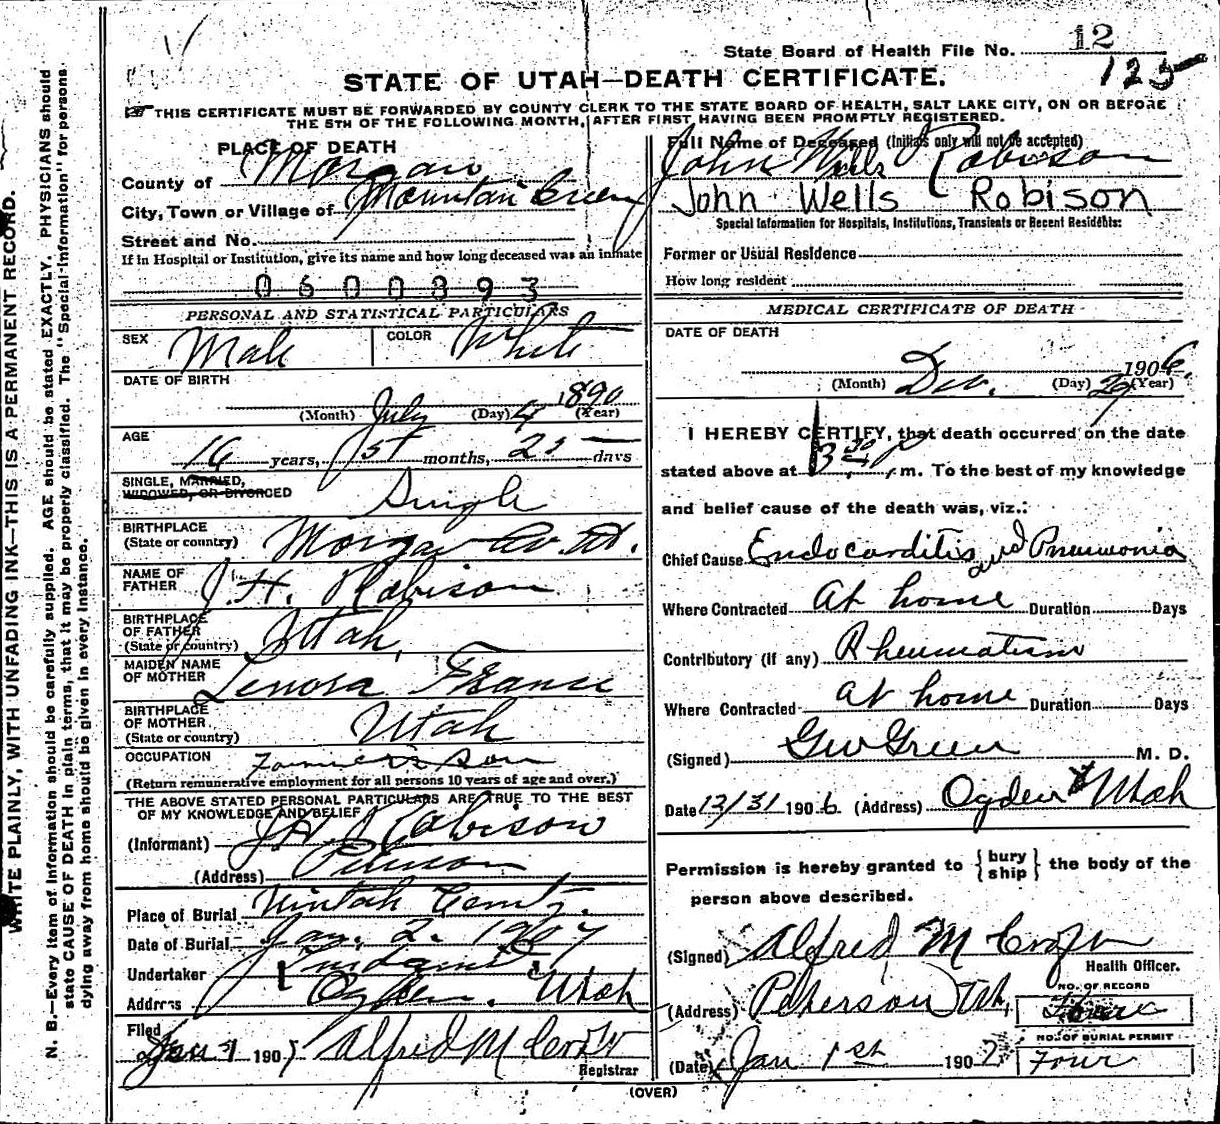 State Board of Health File No. 12
125
STATE OF UTAH—DEATH CERTIFICATE.
THIS CERTIFICATE MUST BE FORWARDED BY COUNTY CLERK TO THE STATE BOARD OF HEALTH, SALT LAKE CITY, ON OR BEFORE
THE 5TH OF THE FOLLOWING MONTH, AFTER FIRST HAVING BEEN PROMPTLY REGISTERED.
WRITE PLAINLY, WITH UNFADING INK—THIS IS A PERMANENT RECORD.
N. B.—Every item of information should be carefully supplied. AGE should be stated EXACTLY. PHYSICIANS should
state CAUSE OF DEATH in plain terms, that it may be properly classified. The "Special Information" for persons
dying away from home should be given in every instance.
PLACE OF DEATH
County of Morgan
City, Town or Village of Mountain Green
Street and No.
If in Hospital or Institution, give its name and how long deceased was an inmate
0600893
PERSONAL AND STATISTICAL PARTICULARS
SEX Male COLOR White
DATE OF BIRTH
July 4 1890
(Month) (Day) (Year)
AGE
16 years, 5 months, 25 days
SINGLE, MARRIED,
WIDOWED, OR DIVORCED
Single
BIRTHPLACE
(State or country) Morgan Co. Ut.
NAME OF
FATHER J. H. Robison
BIRTHPLACE
OF FATHER
(State or country) Utah,
MAIDEN NAME
OF MOTHER Lenora France
BIRTHPLACE
OF MOTHER
(State or country) Utah
OCCUPATION Farmer's Son
(Return remunerative employment for all persons 10 years of age and over.)
THE ABOVE STATED PERSONAL PARTICULARS ARE TRUE TO THE BEST
OF MY KNOWLEDGE AND BELIEF
(Informant) J H Robison
(Address) Peterson
Place of Burial Uintah Cemty.
Date of Burial Jan. 2. 1907
Undertaker
Address Ogden. Utah
Filed
Jan 1 1907 Alfred M
Registrar
Full Name of Deceased (Initials only will not be accepted)
John Wells Robison
John Wells Robison
Special Information for Hospitals, Institutions, Transients or Recent Residents:
Former or Usual Residence
How long resident
MEDICAL CERTIFICATE OF DEATH
DATE OF DEATH
Dec. 29 1906.
(Month) (Day) (Year)
I HEREBY CERTIFY, that death occurred on the date
stated above at 3 30 P m. To the best of my knowledge
and belief cause of the death was, viz.:
Chief Cause Endocarditis and Pneumonia
Where Contracted At home Duration Days
Contributory (if any) Rheumatism
Where Contracted at home Duration Days
(Signed) Geo Green M. D.
Date 12/31 1906 (Address) Ogden Utah
Permission is hereby granted to {bury ship} the body of the
person above described.
(Signed) Alfred M
Health Officer.
(Address) Peterson Ut.
NO. OF RECORD
(Date) Jan 1st 190
NO. OF BURIAL PERMIT
Four
(OVER)